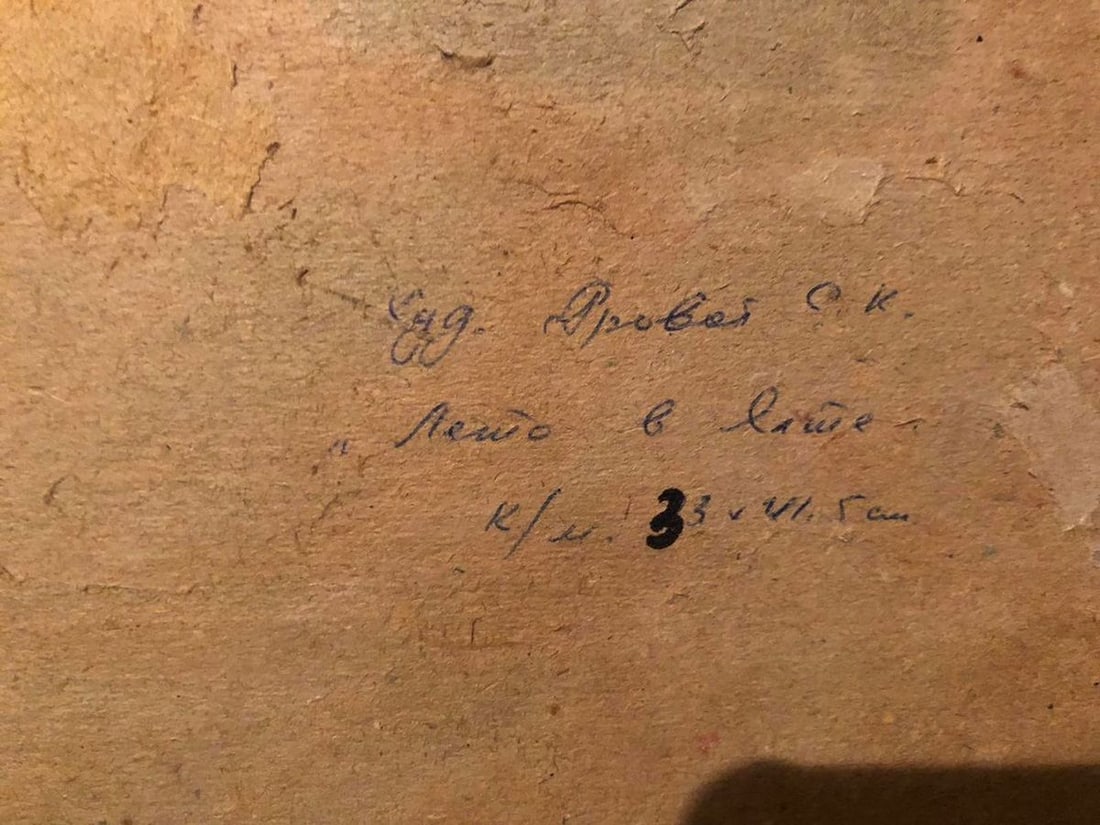 Худ. Яровой С. К.
„ Лето в Ялте
К/м. 33 х 41.5 см